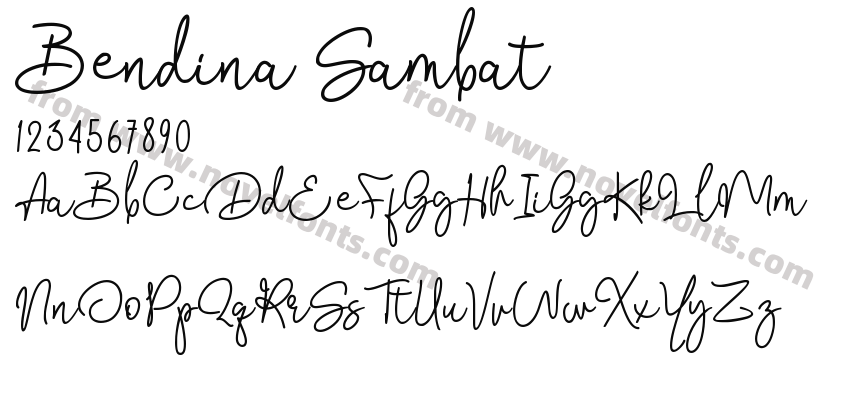 Bendina Sambat
1234567890
AaBbCcDdEeFfGgHhIiGgKkLlMm
NnOoPpQqRrSsTtUuVvWwXxYyZz
from www.novelfonts.com
from www.novelfonts.com